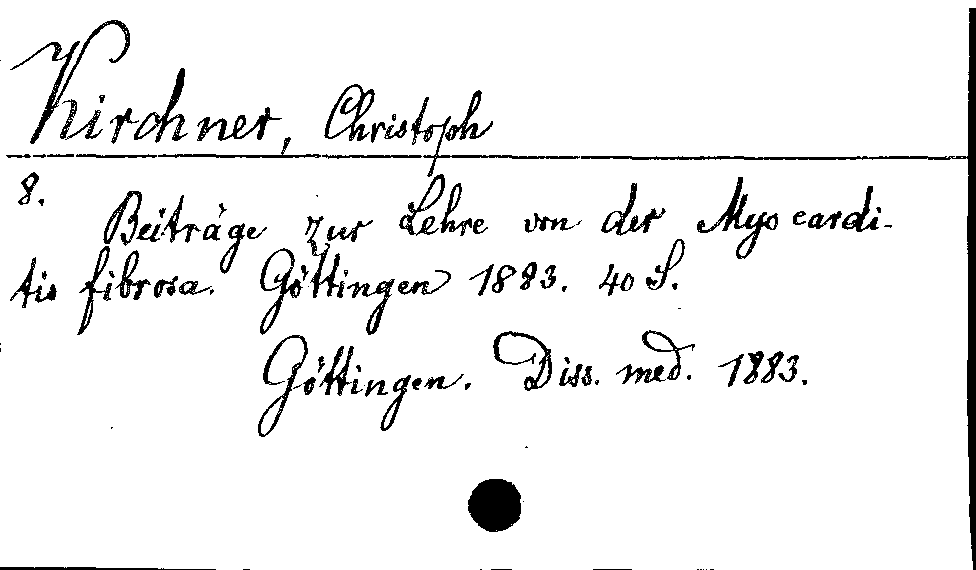 Kirchner, Christoph
8.
Beiträge zur Lehre von der Myocardi-
tis fibrosa. Göttingen 1883. 40 S.
Göttingen. Diss. med. 1883.